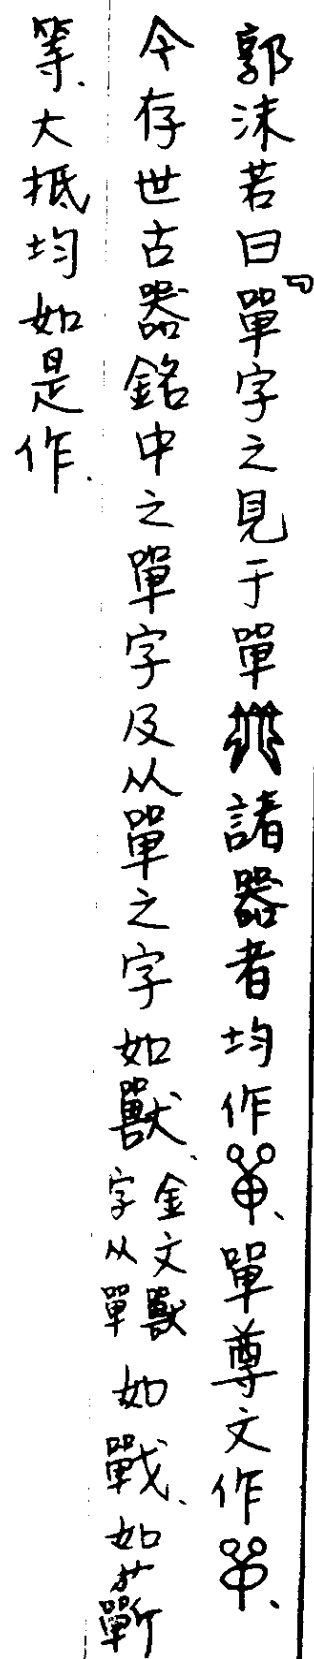 郭沫若曰『單字之見于單諸器者均作、單尊文作、
今存世古器銘中之單字及从單之字如獸、金文獸字从單如戰、如蘄
等、大抵均如是作.